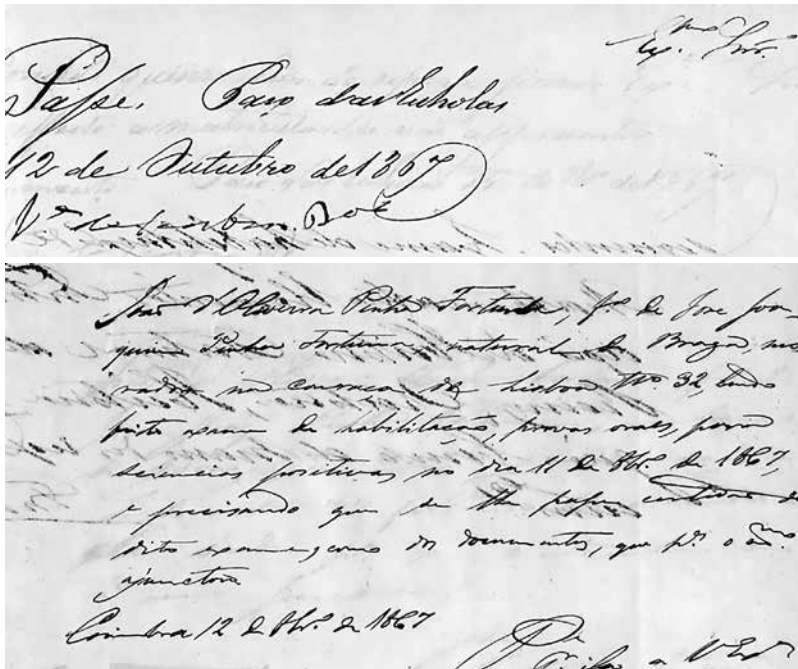 Exmo. Snr.
Passe. Paço das Escholas
12 de Outubro de 1867
João d'Oliveira Pinto Fortuna, fo. de Jose Joa-
quim Pinto Fortuna natural de Braga, mo-
rador na couraça de Lisboa No 32, tendo
feito exame de habilitação, provas oraes, para
sciencias positivas no dia 11 de 8bro. de 1867,
e precisando que se lhe passe certidão do
dito exame, como dos documentos, que pa. o
ajunctou
Coimbra 12 de 8bro. de 1867